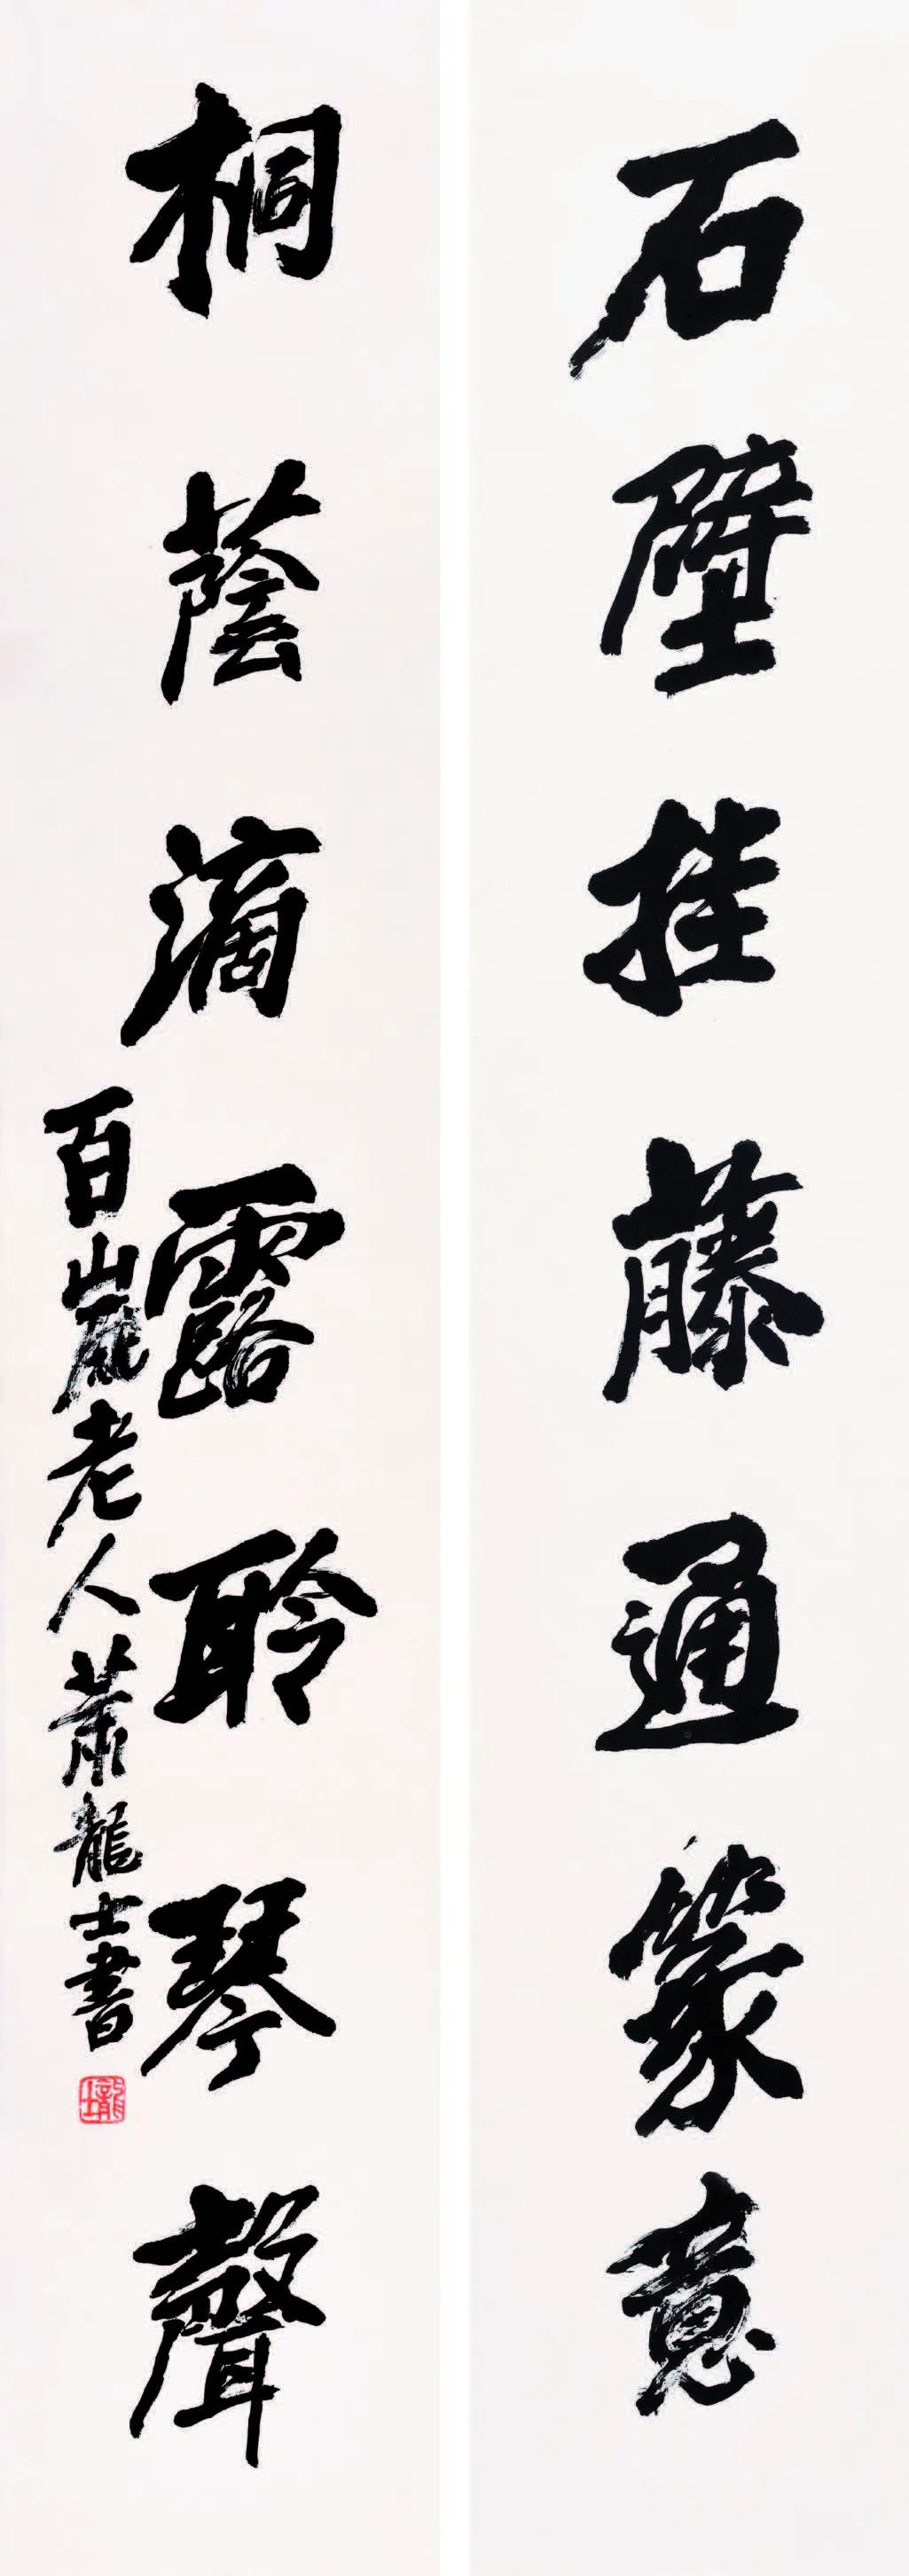 石壁挂藤通篆意
桐蔭滴露聆琴聲
百歲老人蕭龍士書
龍士